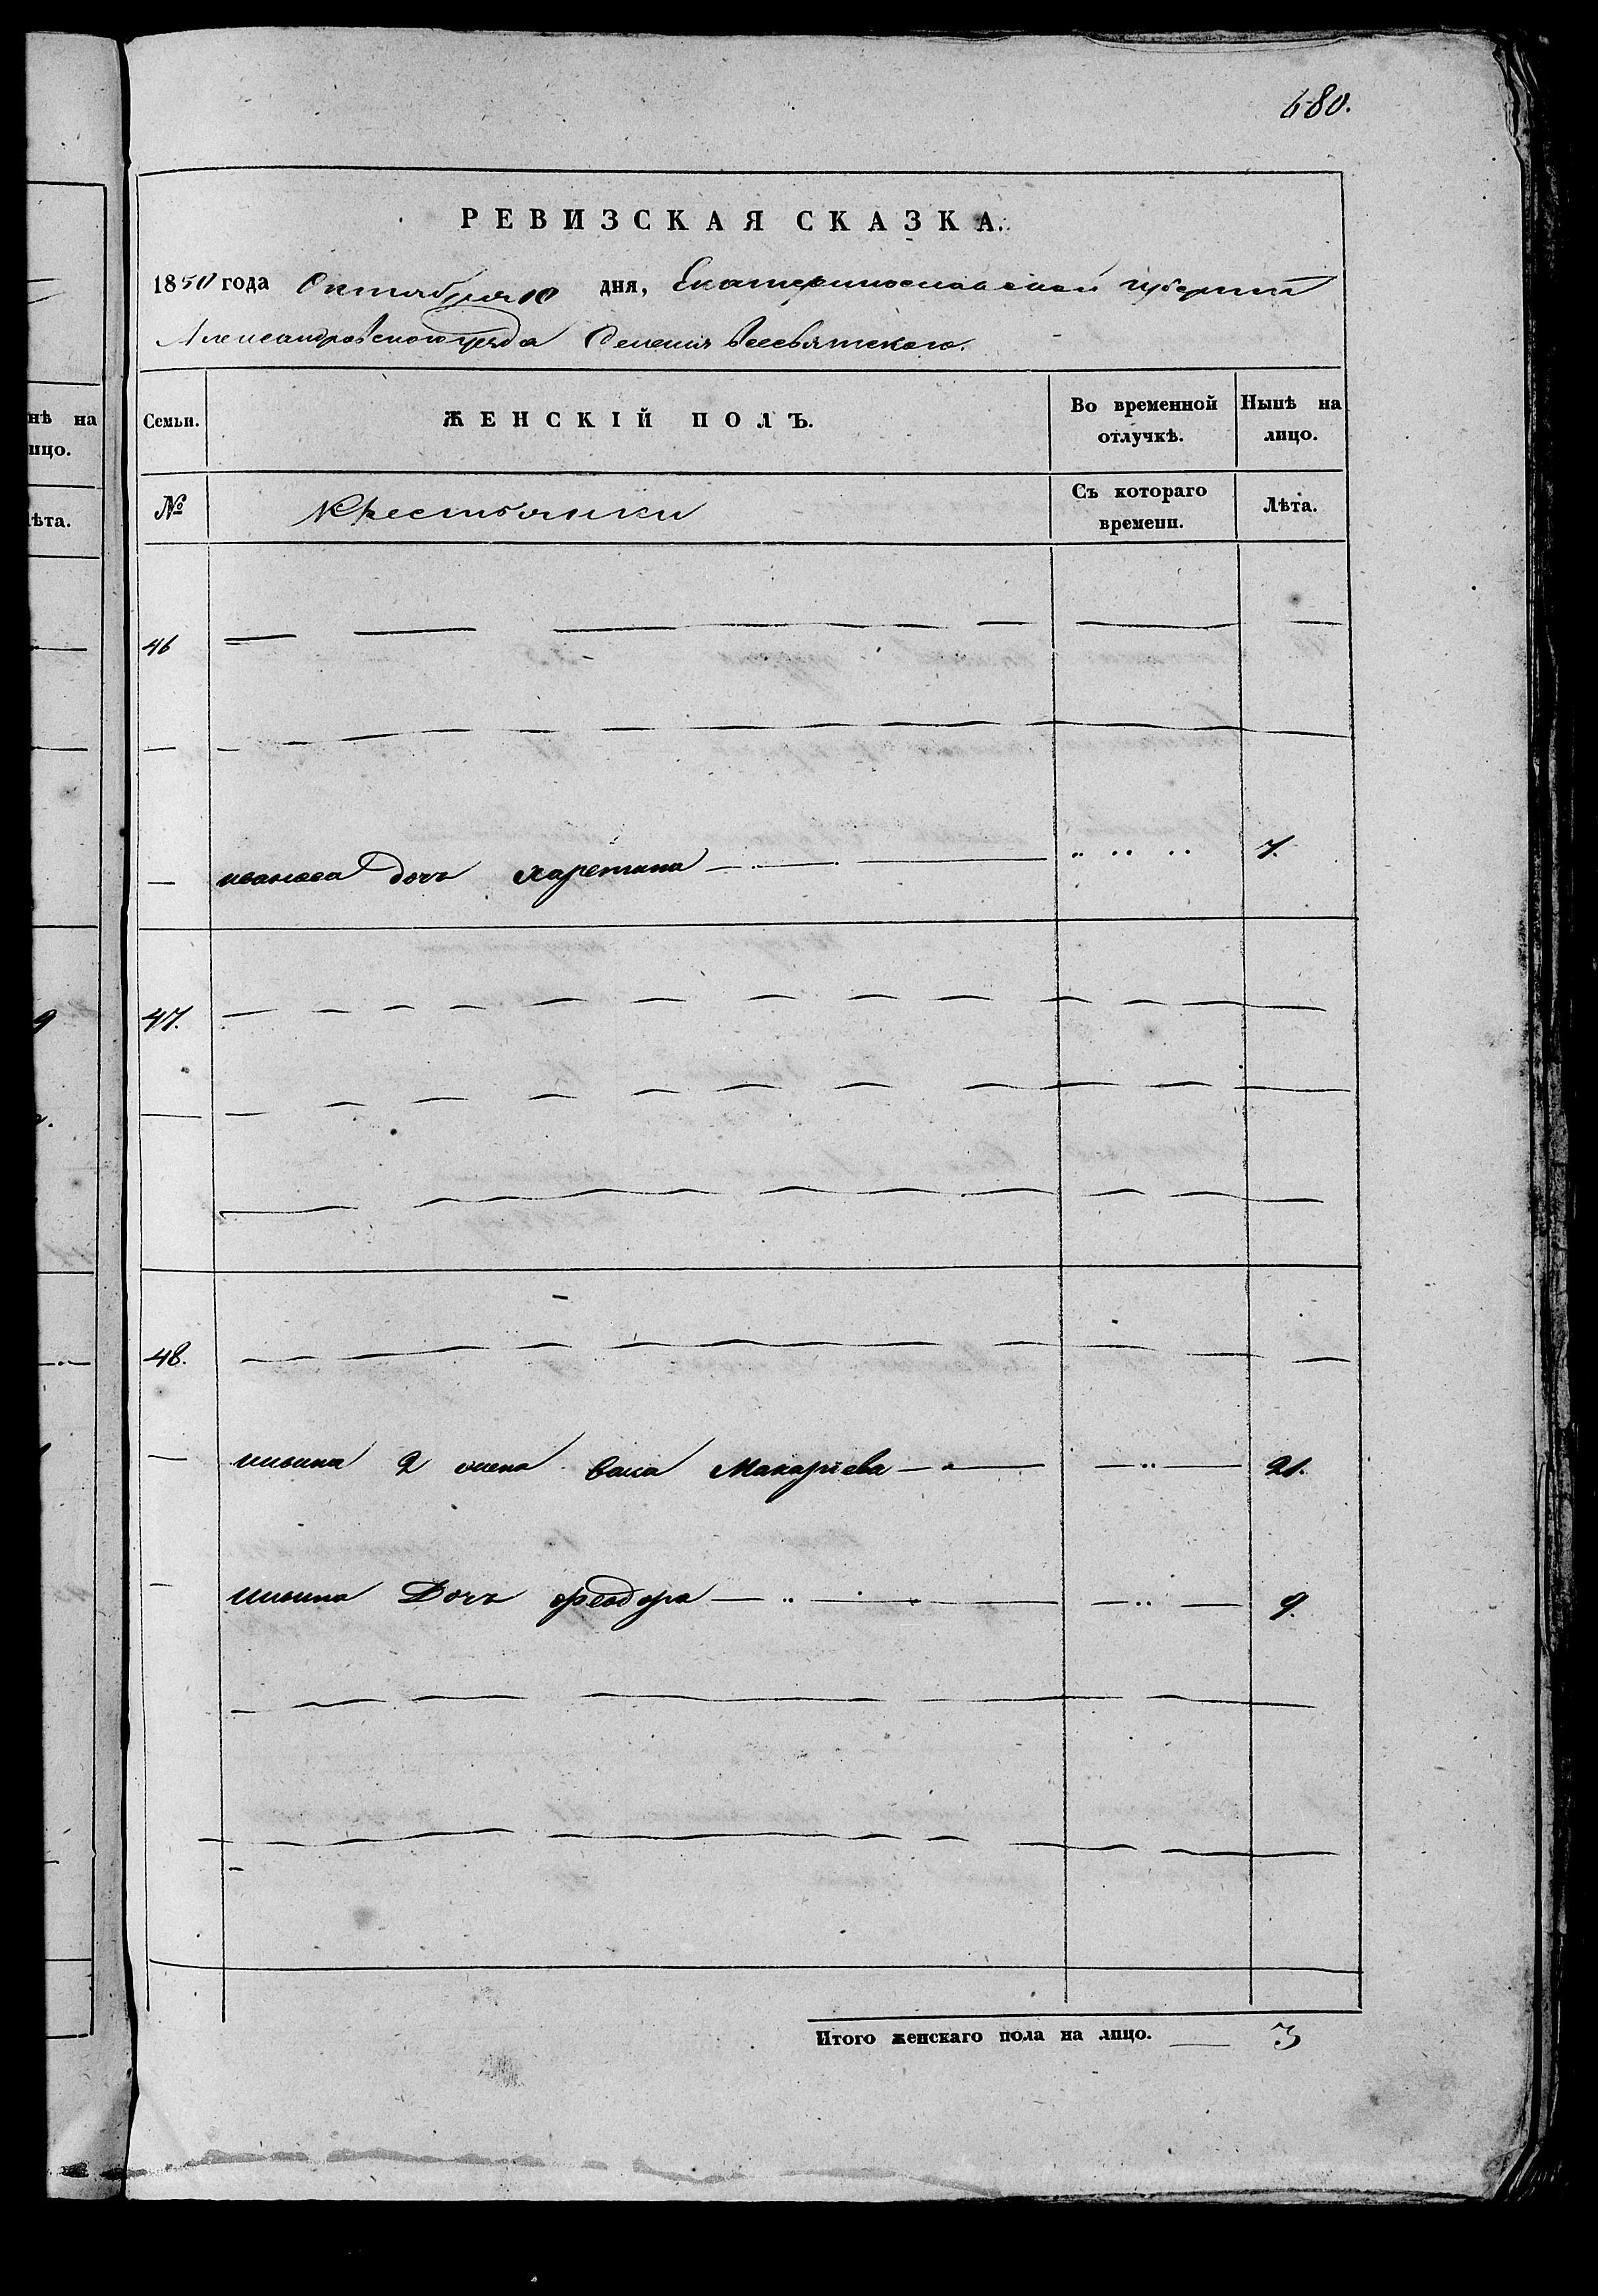 680.
РЕВИЗСКАЯ СКАЗКА.
1850 года Октября 10 дня, Екатеринославской губернии
Александровского уезда Селения всесвятского.
Семьи. ЖЕНСКІЙ ПОЛЪ. Во временной отлучкѣ. Нынѣ на лицо.
№ Крестьянки Съ котораго времени. Лѣта.
46
иванова дочь харетина 7.
47.
48.
ильина 2 жена васа Макарiева 21.
ильина Дочь феодора 9.
Итого женскаго пола на лицо. 3
нѣ на
ицо.
ѣта.